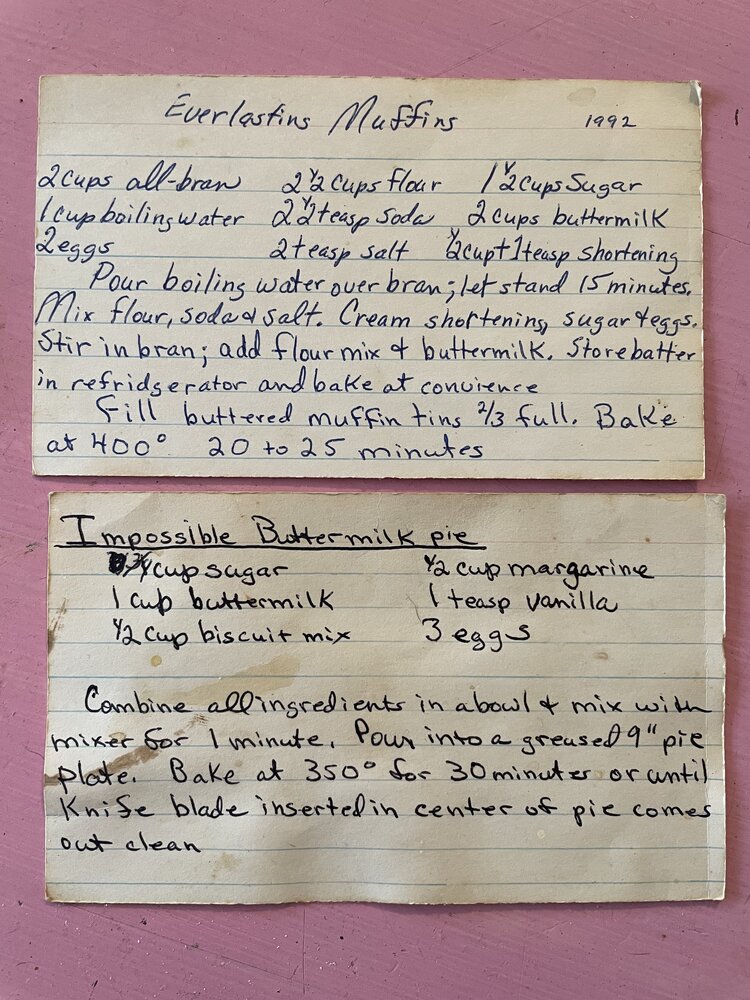 Everlasting Muffins 1992
2 cups all-bran 2 1/2 cups flour 1 1/2 cups Sugar
1 cup boiling water 2 1/2 teasp soda 2 cups buttermilk
2 eggs 2 teasp salt 1/2 cup + 1 teasp shortening
Pour boiling water over bran; let stand 15 minutes.
Mix flour, soda & salt. Cream shortening, sugar & eggs.
Stir in bran; add flour mix & buttermilk. Store batter
in refridgerator and bake at convience
Fill buttered muffin tins 2/3 full. Bake
at 400° 20 to 25 minutes
Impossible Buttermilk pie
3/4 cup sugar 1/2 cup margarine
1 cup buttermilk 1 teasp vanilla
1/2 cup biscuit mix 3 eggs
Combine all ingredients in a bowl & mix with
mixer for 1 minute. Pour into a greased 9" pie
plate. Bake at 350° for 30 minutes or until
Knife blade inserted in center of pie comes
out clean